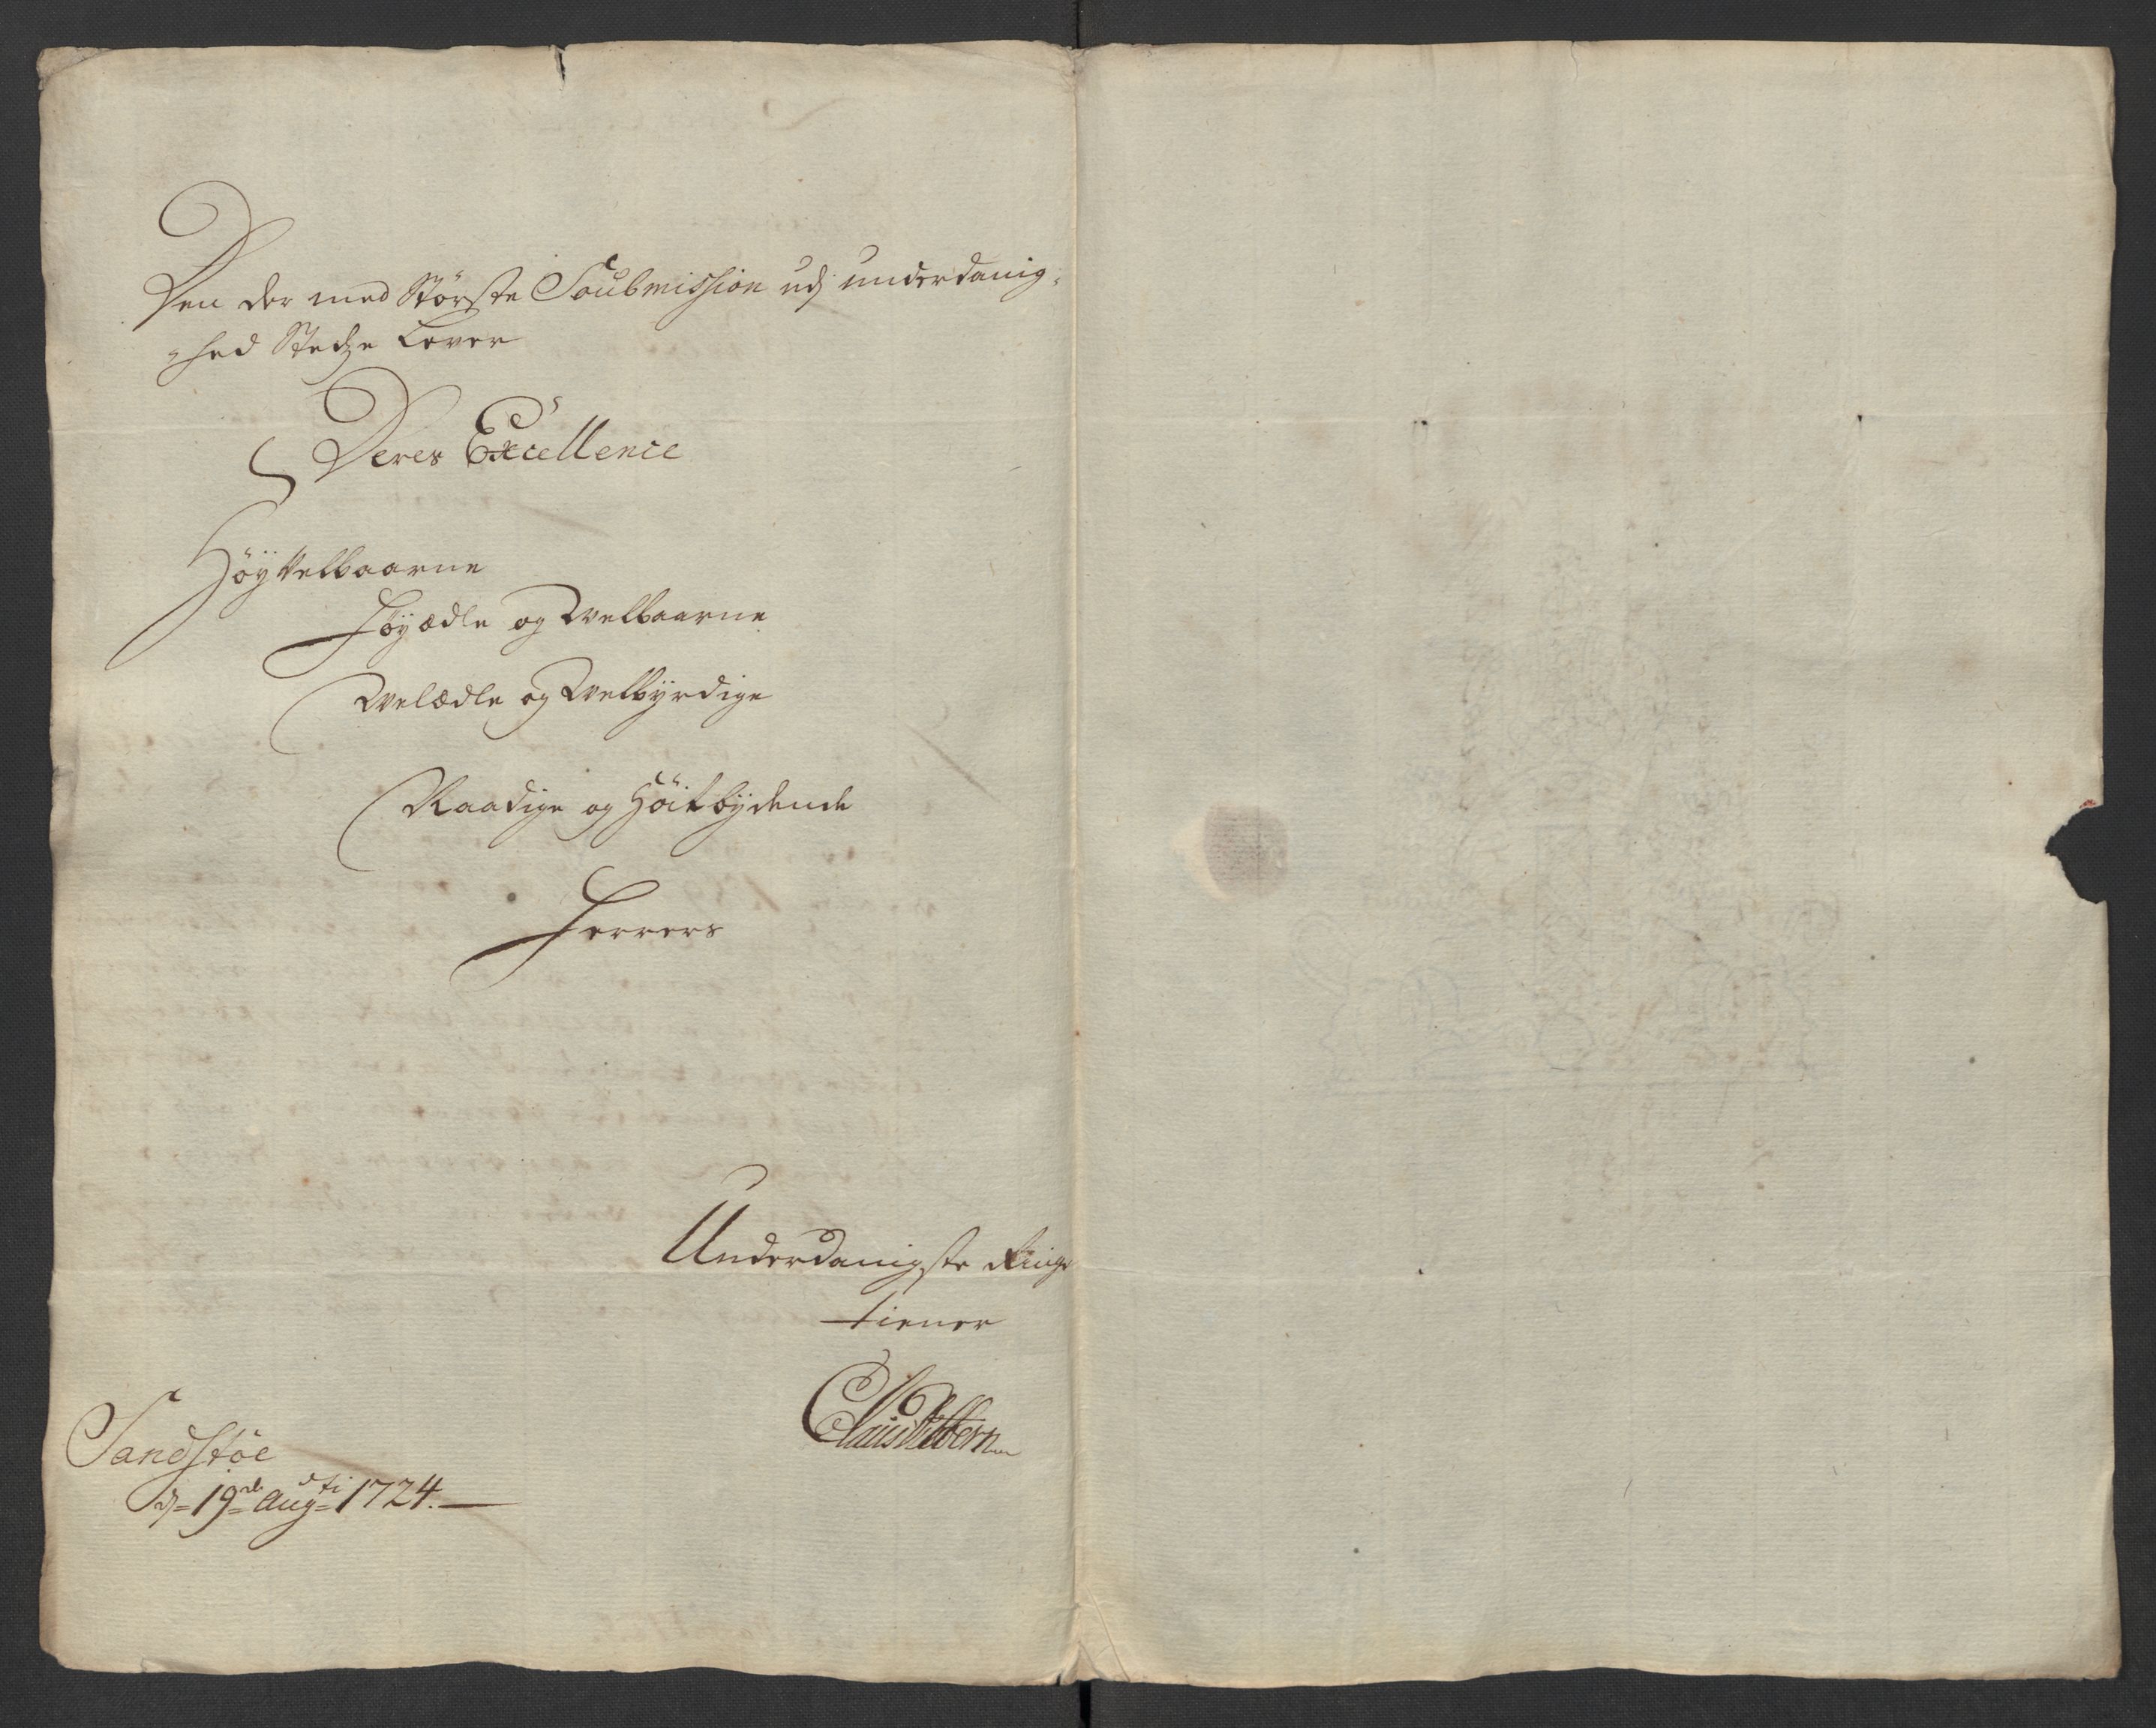 Den der med Störste Soubmission udj underdanig-
-hed Stedze Lever
Deres Excellence
Höyvelbaarne
Höyædle og Welbaarne
Welædle og Welbyrdige
Naadige og Höitbydende
Herrers
Underdanigste Ringe
tiener
Sandstöe
d= 19de Augusti 1724.